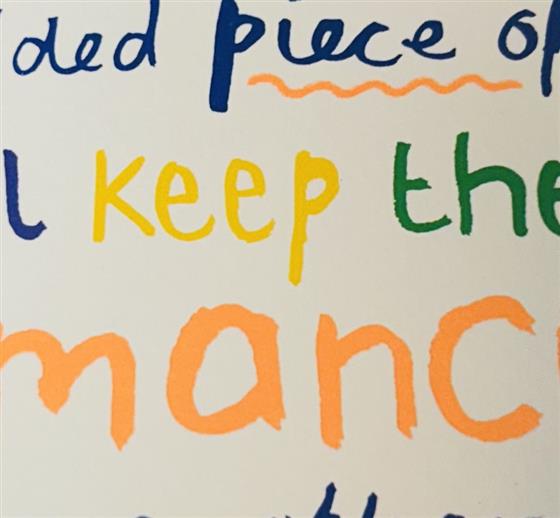 ded piece of
l keep the
manc